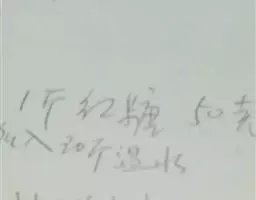 1斤红糖 50克
入20斤温水